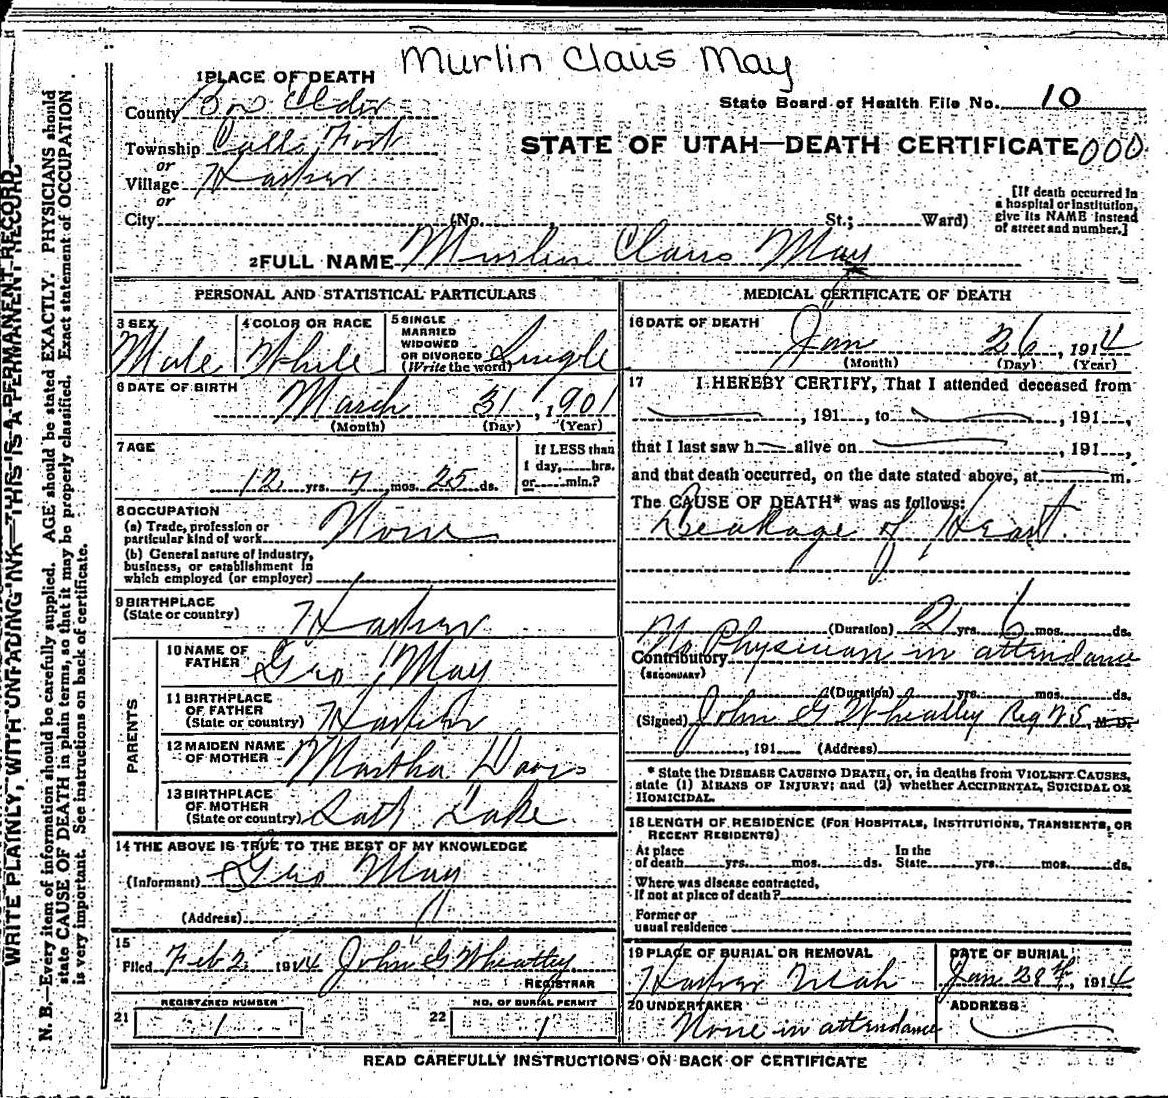 Murlin Claus May
1 PLACE OF DEATH
County Box Elder
State Board of Health File No. 10
Township Calls Fort
or
Village Harper
or
STATE OF UTAH—DEATH CERTIFICATE 000
City (No. St.; Ward)
[If death occurred in
a hospital or institution,
give its NAME instead
of street and number.]
2 FULL NAME Murlin Claus May
PERSONAL AND STATISTICAL PARTICULARS
3 SEX
Male
4 COLOR OR RACE
White
5 SINGLE
MARRIED
WIDOWED
OR DIVORCED
(Write the word) Single
6 DATE OF BIRTH
March 31, 1901
(Month) (Day) (Year)
7 AGE
12 yrs. 7 mos. 25 ds.
If LESS than
1 day, hrs.
or min.?
8 OCCUPATION
(a) Trade, profession or
particular kind of work None
(b) General nature of industry,
business, or establishment in
which employed (or employer)
9 BIRTHPLACE
(State or country) Harper
PARENTS
10 NAME OF
FATHER Geo J May
11 BIRTHPLACE
OF FATHER
(State or country) Harper
12 MAIDEN NAME
OF MOTHER Martha Davis
13 BIRTHPLACE
OF MOTHER
(State or country) Salt Lake
14 THE ABOVE IS TRUE TO THE BEST OF MY KNOWLEDGE
(Informant) Geo May
(Address) "
15
Filed Feb 2, 1914 John G Wheatley
REGISTRAR
REGISTERED NUMBER
21 1
NO. OF BURIAL PERMIT
22 1
MEDICAL CERTIFICATE OF DEATH
16 DATE OF DEATH
Jan 26, 1914
(Month) (Day) (Year)
17 I HEREBY CERTIFY, That I attended deceased from
, 191 , to , 191 ,
that I last saw h alive on , 191 ,
and that death occurred, on the date stated above, at m.
The CAUSE OF DEATH* was as follows:
Leakage of Heart
(Duration) 2 yrs. 6 mos. ds.
Contributory No Physician in attendance
(SECONDARY)
(Duration) yrs. mos. ds.
(Signed) John G Wheatley Reg V.S, M.D.
, 191 (Address)
* State the DISEASE CAUSING DEATH, or, in deaths from VIOLENT CAUSES,
state (1) MEANS OF INJURY; and (2) whether ACCIDENTAL, SUICIDAL OR
HOMICIDAL.
18 LENGTH OF RESIDENCE (FOR HOSPITALS, INSTITUTIONS, TRANSIENTS, OR
RECENT RESIDENTS)
At place
of death yrs. mos. ds.
In the
State yrs. mos. ds.
Where was disease contracted,
If not at place of death?
Former or
usual residence
19 PLACE OF BURIAL OR REMOVAL
Harper Utah
DATE OF BURIAL
Jan 28th, 1914
20 UNDERTAKER
None in attendance
ADDRESS
READ CAREFULLY INSTRUCTIONS ON BACK OF CERTIFICATE
WRITE PLAINLY, WITH UNFADING INK—THIS IS A PERMANENT RECORD
N. B.—Every item of information should be carefully supplied. AGE should be stated EXACTLY. PHYSICIANS should
state CAUSE OF DEATH in plain terms, so that it may be properly classified. Exact statement of OCCUPATION
is very important. See instructions on back of certificate.